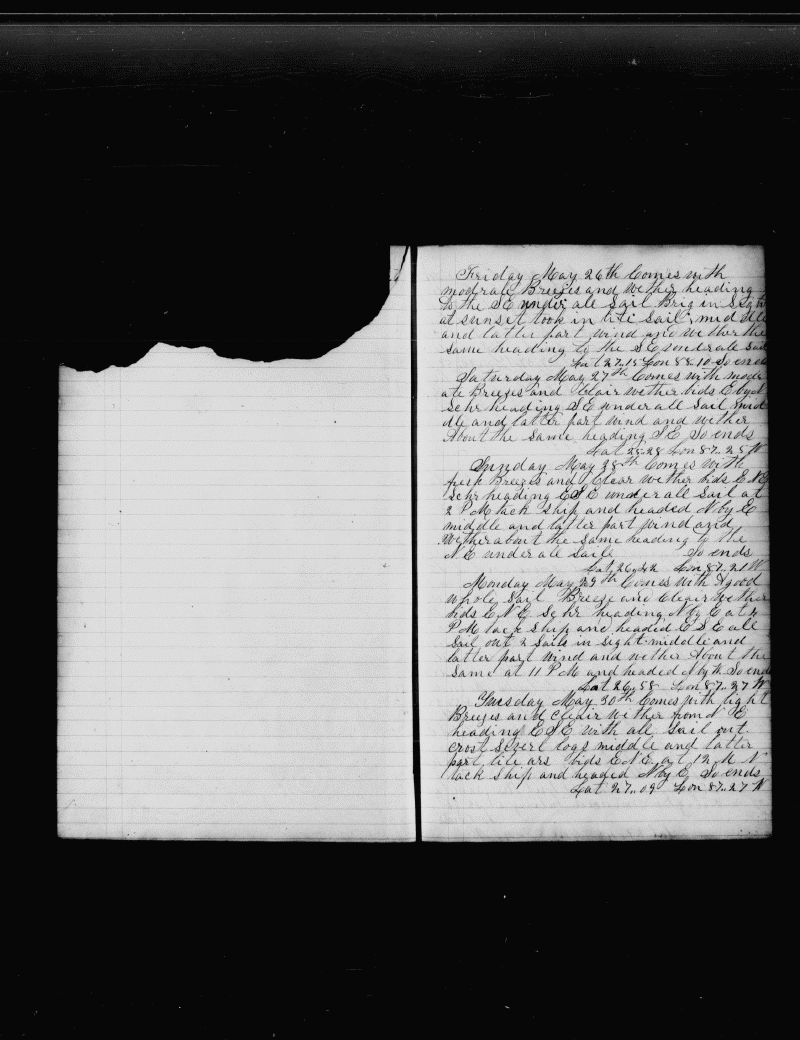 Friday May 26th Comes with
moderate Breezes and wether heading
to the SE under all Sail Brig in Sight
at sunset took in lite Sail middle
and latter part wind and wether the
same heading to the SE moderate Sail
Lat 27.15 Lon 88.10 So ends
Saturday May 27th Comes with moder
ate Breezes and Clair wether bids E by N
Schr heading SE under all Sail mid
dle and latter part wind and wether
About the Same heading SE So ends
Lat 25.28 Lon 87.25 W
Sunday May 28th Comes with
fresh Breezes and Clear wether bids ENE
Schr heading ESE under all Sail at
2 PM tack Ship and headed N by E
middle and latter part wind and
wether about the same heading to the
NE under ale Saile So ends
Lat 26.42 Lon 87.21 W
Monday May 29th Comes with A good
whole Sail Breeze and Cleair wether
bids ENE Schr heading N by E at 4
PM tack Ship and headed ESE all
Sail out 2 Sails in sight middle and
latter part wind and wether About the
Same at 11 PM and headed N by W So ends
Lat 26.58 Lon 87.27 W
Tuesday May 30th Comes with light
Breezes and Cleair wether from N E
heading ESE with all Sail out
crost severl logs middle and latter
part lite ars bids ENE at 12 M N
tack Ship and headed N by E So ends
Lat 27.09 Lon 87.27 W